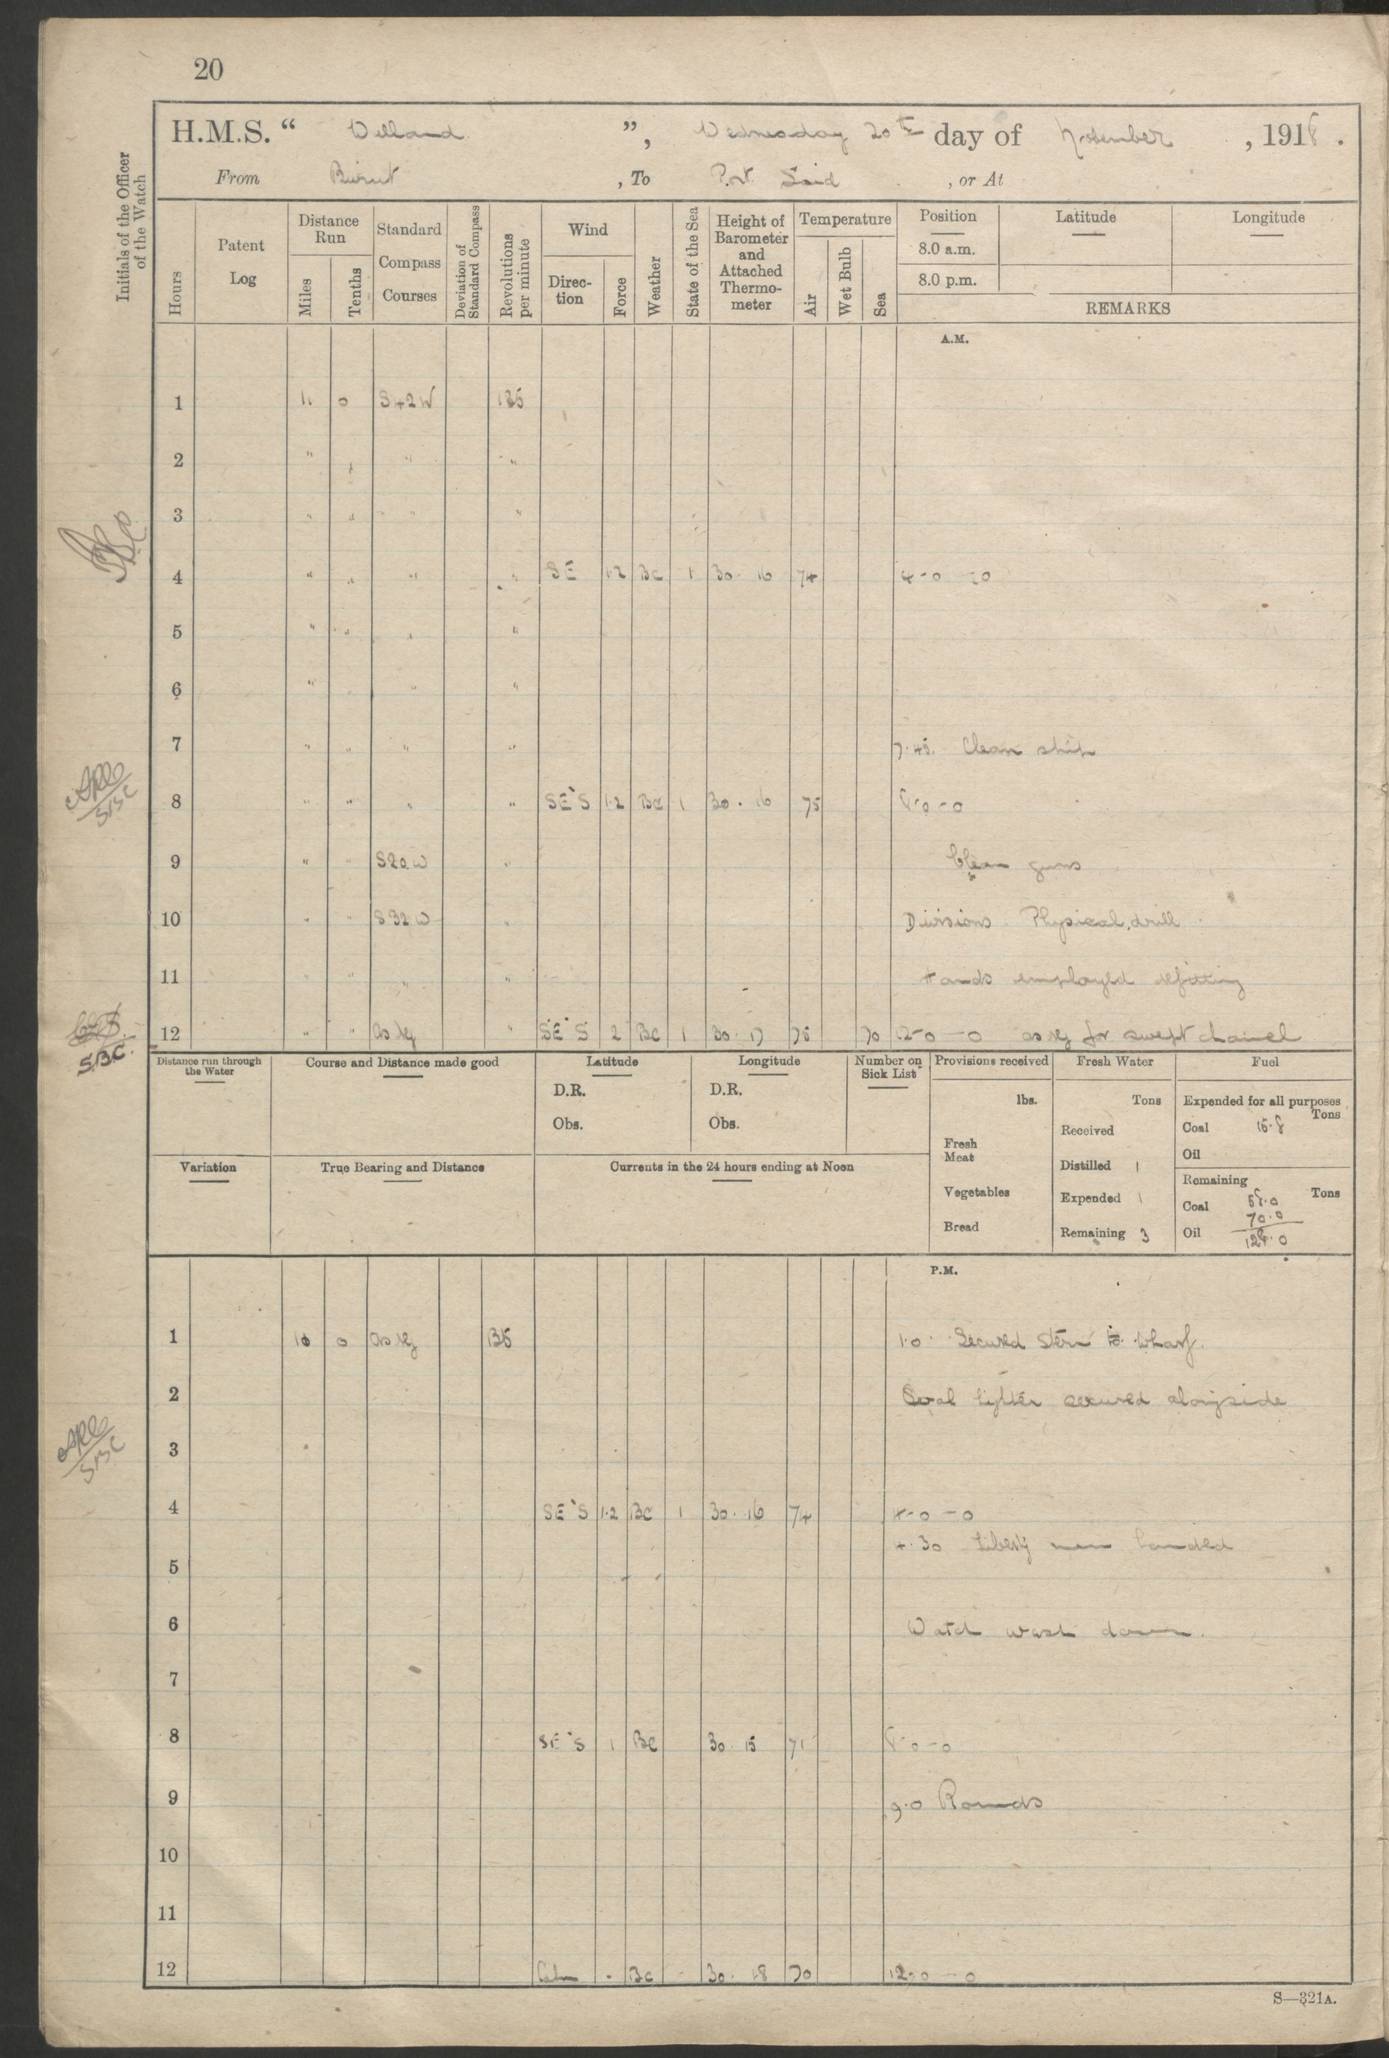 20
H.M.S. “ Welland ”, Wednesday 20th day of November, 1918.
From Beirut, To Port Said, or At
Initials of the Officer of the Watch
Hours
Patent Log
Distance Run
Miles
Tenths
Standard Compass Courses
Deviation of Standard Compass
Revolutions per minute
Wind
Direction
Force
Weather
State of the Sea
Height of Barometer and Attached Thermometer
Temperature
Air
Wet Bulb
Sea
Position Latitude Longitude
8.0 a.m.
8.0 p.m.
REMARKS
A.M.
1 11 0 S42W 135
2 " " " "
3 " " " "
4 " " " " SE 1.2 BC 1 30.16 74 4-0 -0
5 " " " "
6 " " "
7 " " " " 7.45. Clean ship
8 " " " " SE'S 1.2 BC 1 30.16 75 8-0-0
9 " " S20W " Clean guns
10 " " S32W " Divisions. Physical drill
11 " " " " Hands employed refitting
12 " " as req " SE'S 2 BC 1 30.17 75 70 12-0-0 as req for swept channel
SBC.
Distance run through the Water
Course and Distance made good
Latitude
D.R.
Obs.
Longitude
D.R.
Obs.
Number on Sick List
Provisions received
lbs.
Fresh Meat
Vegetables
Bread
Fresh Water
Tons
Received
Distilled 1
Expended 1
Remaining 3
Fuel
Expended for all purposes
Tons
Coal 15.8
Oil
Remaining
Tons
Coal 58.0
70.0
Oil 128.0
Variation
True Bearing and Distance
Currents in the 24 hours ending at Noon
P.M.
1 10 0 as req 135 1.0 Secured stern to wharf.
2 Coal lighter secured alongside
3
4 SE'S 1.2 BC 1 30.16 74 4-0-0
4.30 Liberty men landed
5
6 Watch wash down.
7
8 SE'S 1 BC 30.15 71 8-0-0
9 9.0 Rounds
10
11
12 Calm - BC - 30.18 70 12-0-0
S—321A.